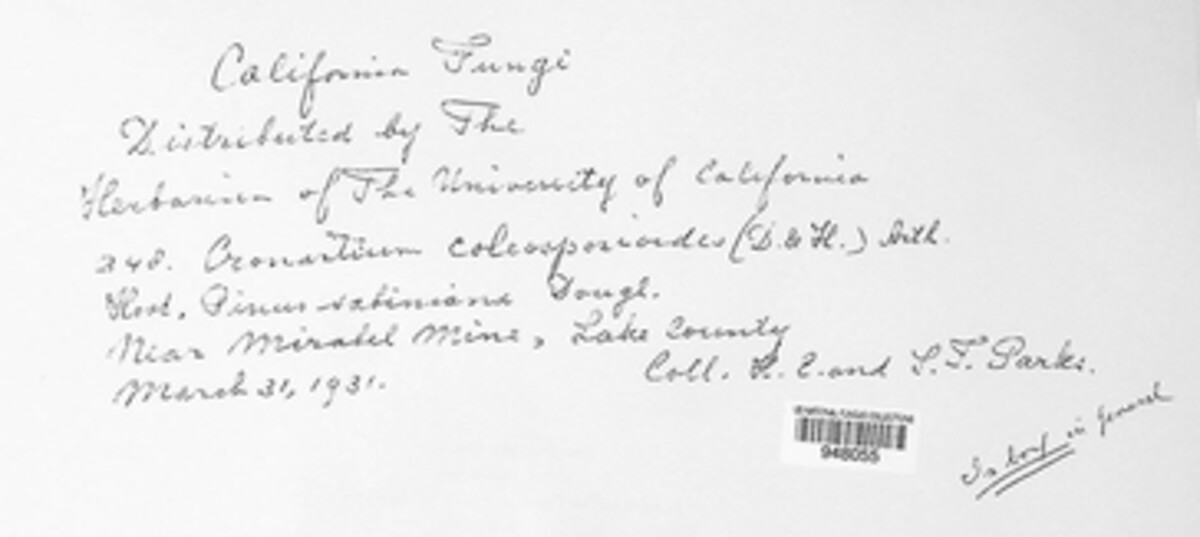 California Fungi
Distributed by The
Herbarium of The University of California
348. Cronartium coleosporioides (D. & H.) Arth.
Host, Pinus sabiniana Dougl.
Near Mirabel Mine, Lake County
March 31, 1931.
Coll. H. E. and S. T. Parks.
948055
In box in General